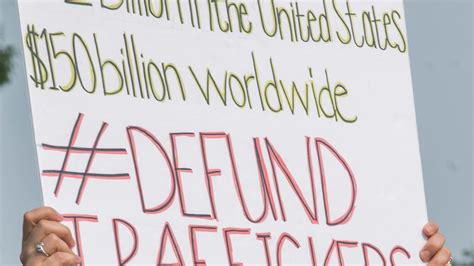 2 Billion in the United States
$150 billion worldwide
#DEFUND
TRAFFICKERS